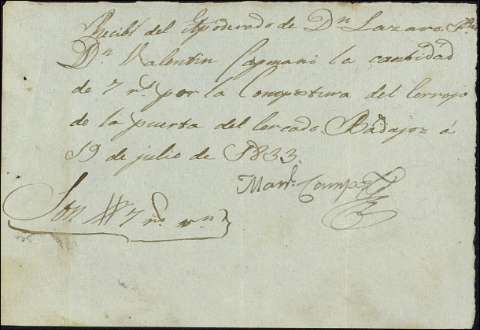 Recibí del Apoderado de Dn Lazaro
Dn Valentin Capmani la cantidad
de 7 rs por la Compostura del Cerrojo
de la puerta del Cercado. Badajoz á
19 de julio de 1833.
Manl
Son # 7 rs vn